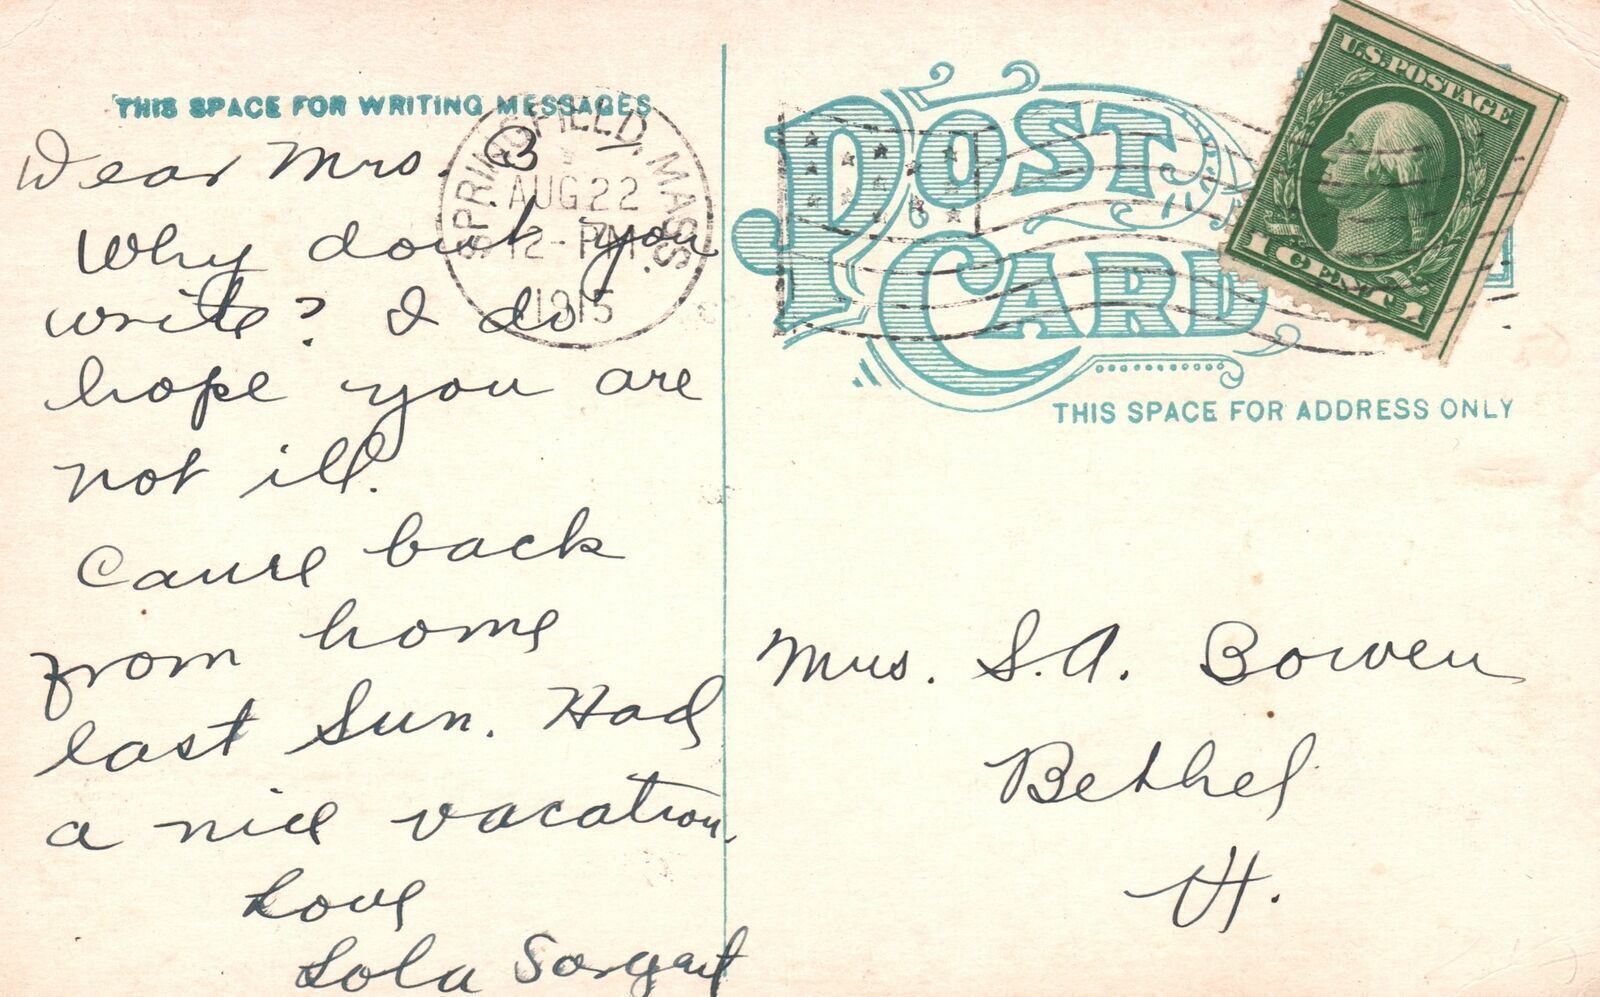 THIS SPACE FOR WRITING MESSAGES
Dear Mrs. B
Why don't you
write? I do
hope you are
not ill.
Came back
from home
last Sun. Had
a nice vacation.
Love
Lola Sargent
SPRINGFIELD, MASS.
AUG 22
12-PM
1915
POST CARD
U.S. POSTAGE
1 CENT 1
THIS SPACE FOR ADDRESS ONLY
Mrs. S. A. Bowen
Bethel
Vt.